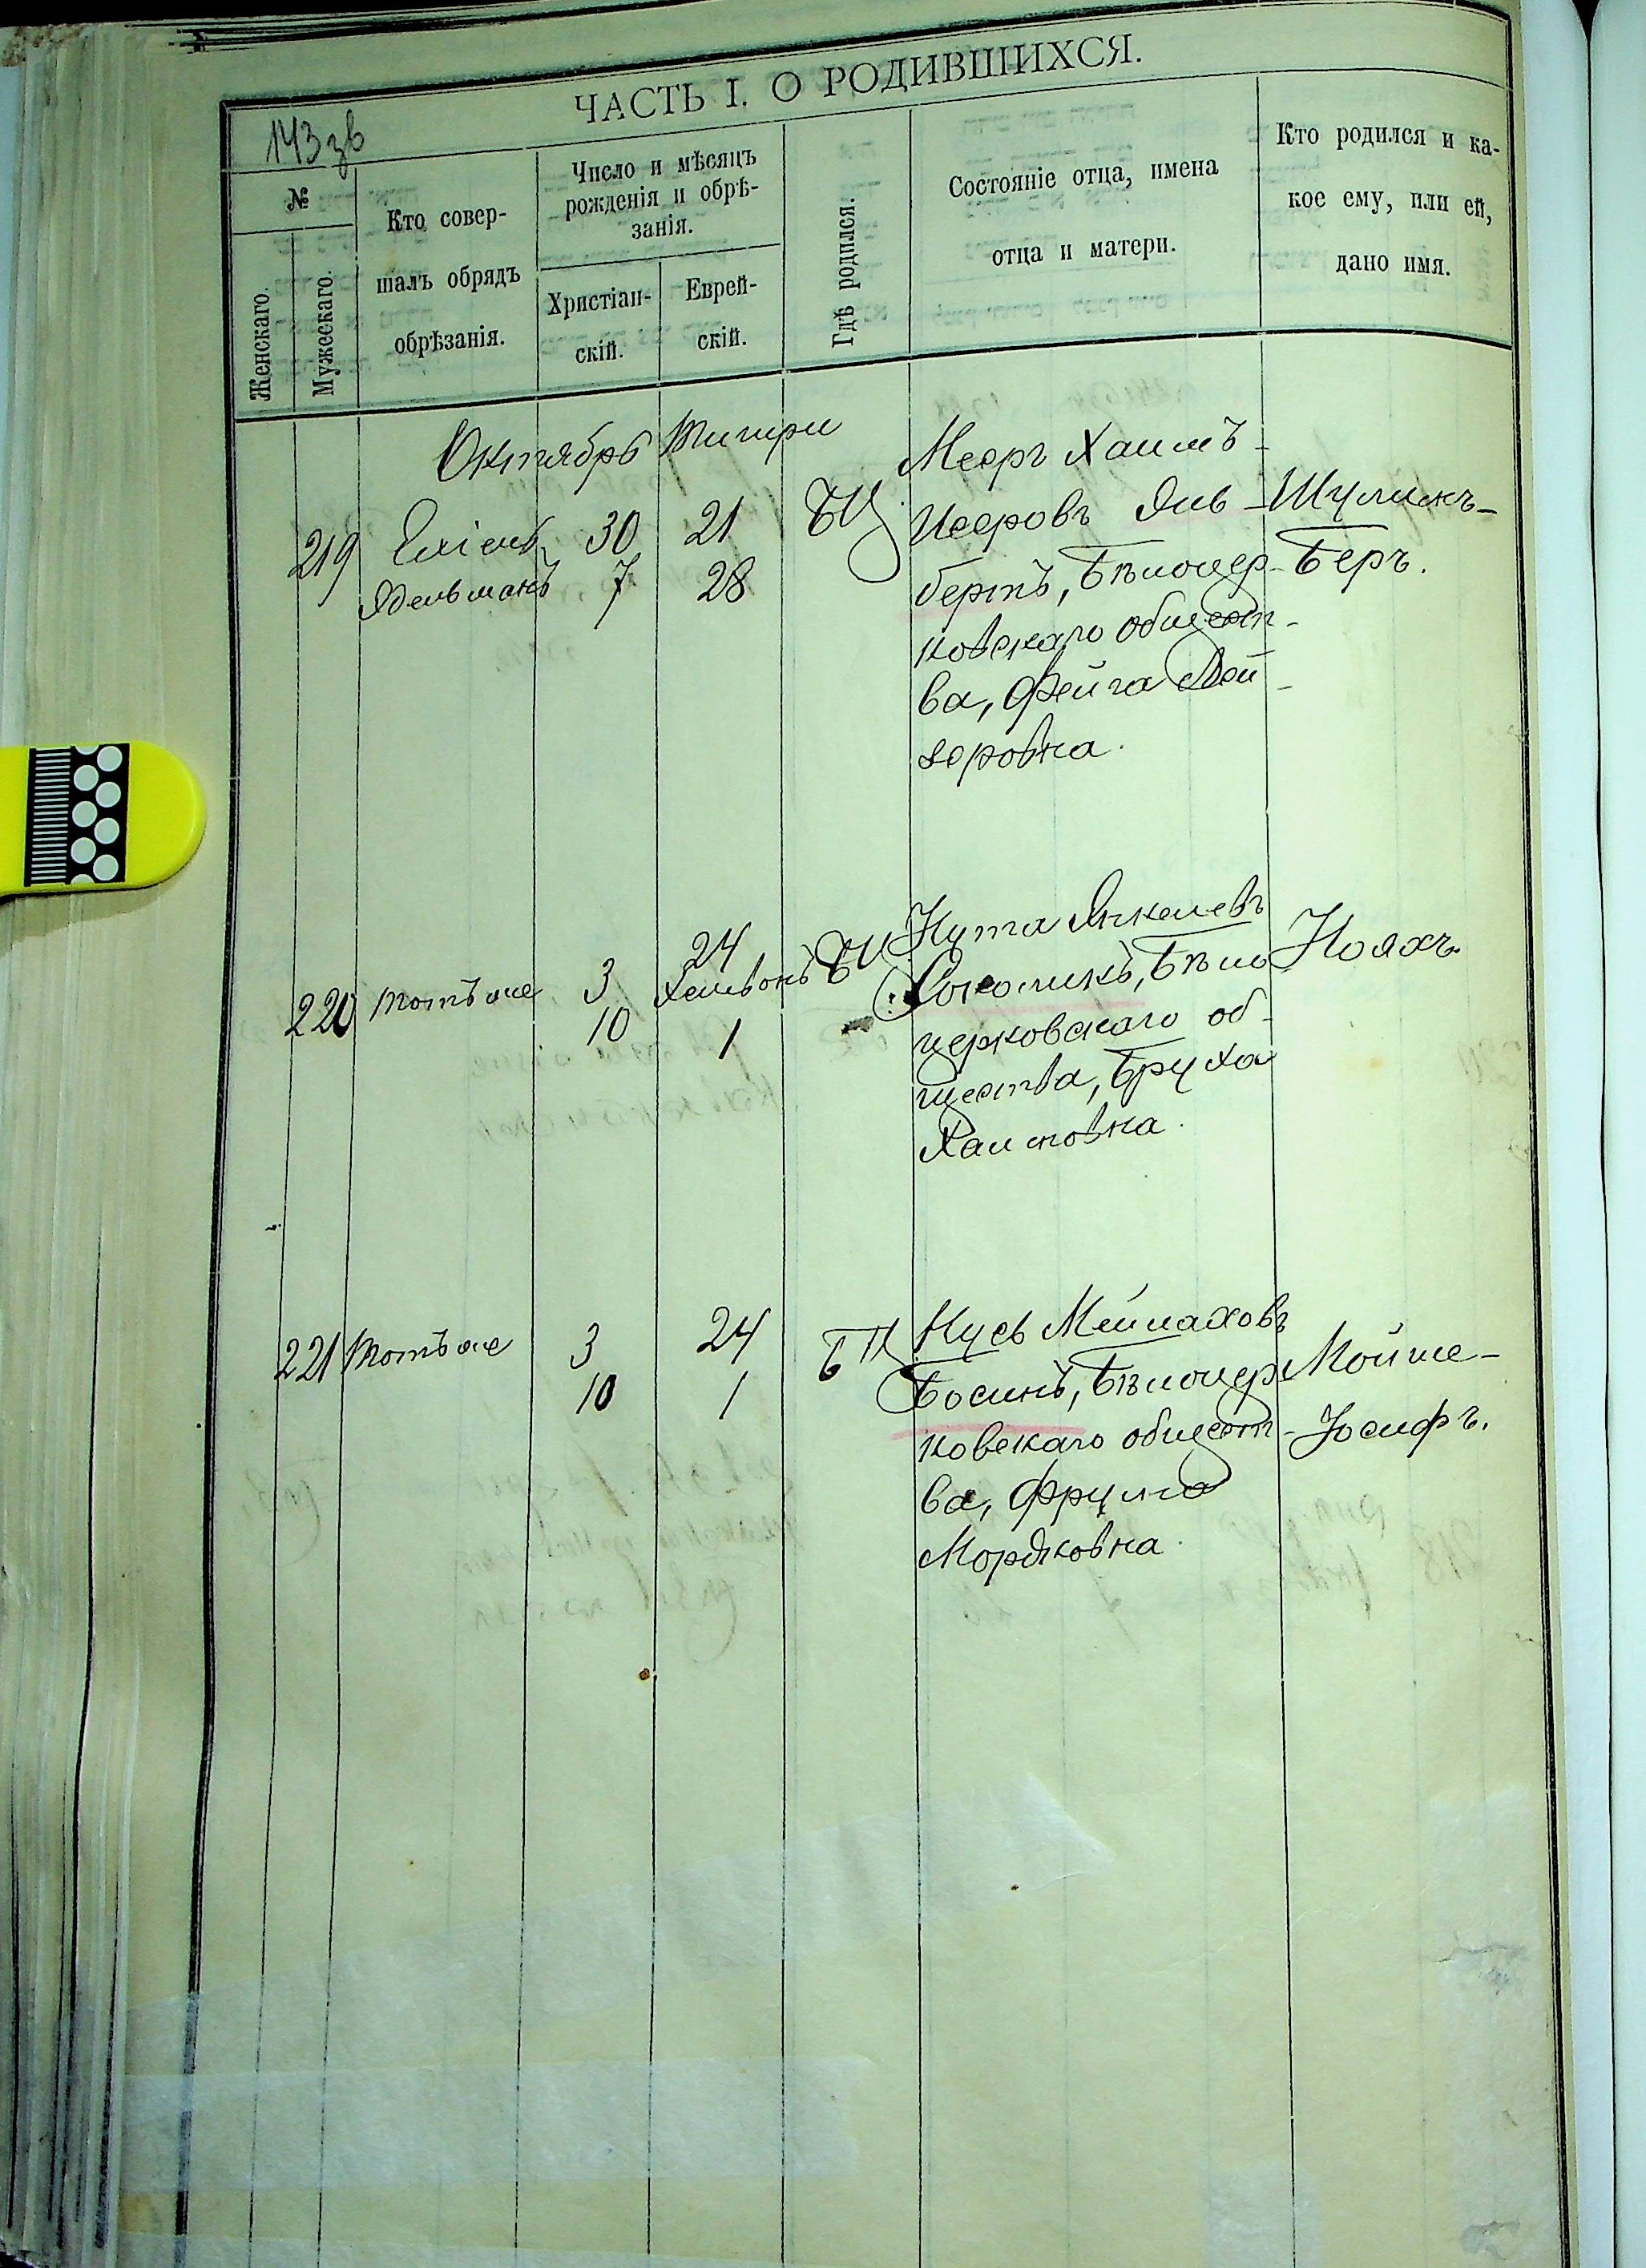 ЧАСТЬ I. О РОДИВШИХСЯ.
143 зв
№
Женскаго.
Мужескаго.
Кто совер-
шалъ обрядъ
обрѣзанія.
Число и мѣсяцъ
рожденія и обрѣ-
занія.
Христіан-
скій.
Еврей-
скій.
Гдѣ родился.
Состояніе отца, имена
отца и матери.
Кто родился и ка-
кое ему, или ей,
дано имя.
Октябрь Тишри
219
30 21
7 28
БЦ
Мееръ Хаимъ-
бертъ, Бѣлоцер-
ковскаго общест-
ва, Фейга Лей-
зеровна.
Шулимъ-
Беръ.
220 Тотъ же
3 24
Хешвонъ
10 1
БЦ
Нута Янкелевъ
Соколикъ, Бѣло
церковскаго об-
щества, Бруха
Хаимовна.
Ноахъ.
221 Тотъ же
3 24
10 1
БЦ
Нусь Мейлаховъ
Босинъ, Бѣлоцер
ковскаго общест-
ва, Фрума
Мордковна.
Мойше-
Іосифъ.